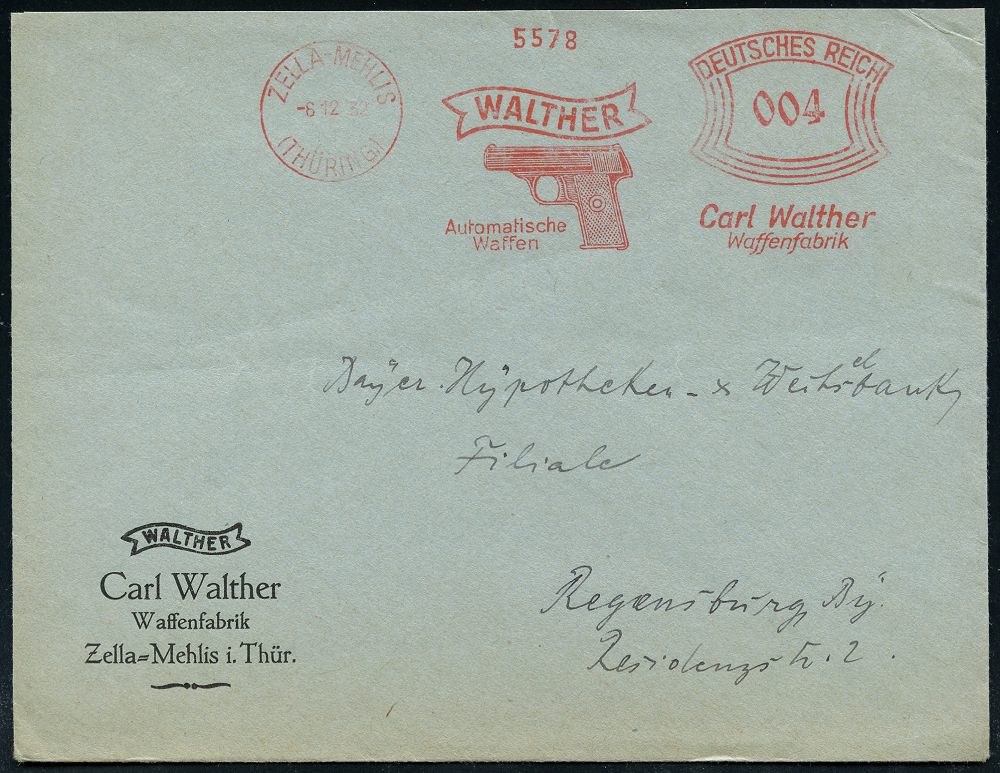 5578
ZELLA-MEHLIS
-6.12.32
(THÜRING)
WALTHER
Automatische
Waffen
DEUTSCHES REICH
004
Carl Walther
Waffenfabrik
Bayer. Hypotheken- &
Filiale
Regensburg, By.
Residenzstr. 2.
WALTHER
Carl Walther
Waffenfabrik
Zella=Mehlis i. Thür.